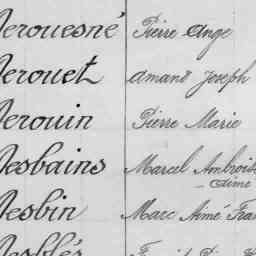 Derouesné Pierre Ange
Derouet Amand Joseph
Derouin Pierre Marie
Desbains Marcel Ambroise
Aimé
Desbin Marc Aimé Fran
Desblés